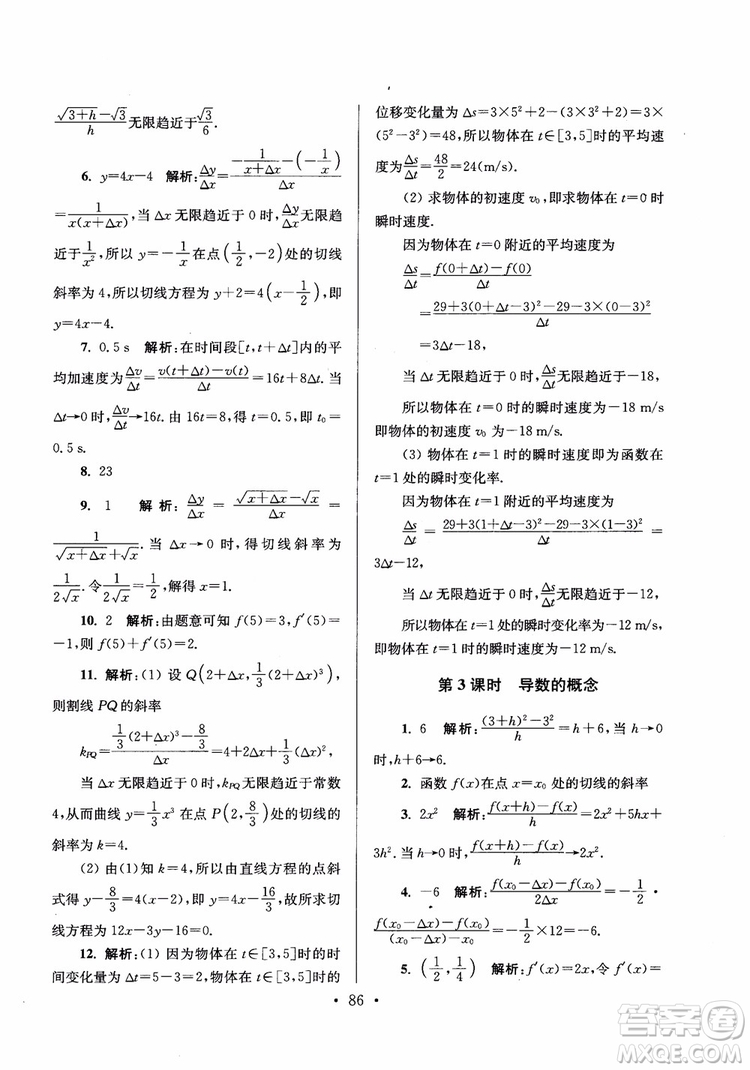 (√(3+h)－√3)/h 无限趋近于 √3/6.
6. y=4x－4 解析: Δy/Δx = (－1/(x+Δx)－(－1/x))/Δx
=1/(x(x+Δx)), 当 Δx 无限趋近于 0 时, Δy/Δx 无限趋
近于 1/x², 所以 y=－1/x 在点 (1/2, －2) 处的切线
斜率为 4, 所以切线方程为 y+2=4(x－1/2), 即
y=4x－4.
7. 0.5 s 解析: 在时间段[t, t+Δt]内的平
均加速度为 Δv/Δt = (v(t+Δt)－v(t))/Δt =16t+8Δt. 当
Δt→0 时, Δv/Δt→16t. 由 16t=8, 得 t=0.5, 即 t₀=
0.5 s.
8. 23
9. 1 解析: Δy/Δx = (√(x+Δx)－√x)/Δx =
1/(√(x+Δx)+√x). 当 Δx→0 时, 得切线斜率为
1/(2√x). 令 1/(2√x)=1/2, 解得 x=1.
10. 2 解析: 由题意可知 f(5)=3, f′(5)=
－1, 则 f(5)+f′(5)=2.
11. 解析: (1) 设 Q(2+Δx, 1/3(2+Δx)³),
则割线 PQ 的斜率
k_PQ = (1/3(2+Δx)³－8/3)/Δx =4+2Δx+1/3(Δx)².
当 Δx 无限趋近于 0 时, k_PQ 无限趋近于常数
4, 从而曲线 y=1/3x³ 在点 P(2, 8/3) 处的切线的
斜率为 k=4.
(2) 由(1)知切线的斜率 k=4, 所以由直线方程的点斜
式得 y－8/3=4(x－2), 即 y=4x－16/3, 故所求切
线方程为 12x－3y－16=0.
12. 解析: (1) 因为物体在 t∈[3,5]时的时
间变化量为 Δt=5－3=2, 物体在 t∈[3,5]时的
位移变化量为 Δs=3×5²+2－(3×3²+2)=3×
(5²－3²)=48, 所以物体在 t∈[3,5]时的平均速
度为 Δs/Δt=48/2=24(m/s).
(2) 求物体的初速度 v₀, 即求物体在 t=0 时
瞬时速度.
因为物体在 t=0 附近的平均速度为
Δs/Δt = (f(0+Δt)－f(0))/Δt
= (29+3(0+Δt－3)²－29－3×(0－3)²)/Δt
=3Δt－18,
当 Δt 无限趋近于 0 时, Δs/Δt 无限趋近于－18,
所以物体在 t=0 时的瞬时速度为－18 m/s,
即物体的初速度 v₀ 为－18 m/s.
(3) 物体在 t=1 时的瞬时速度即为函数在
t=1 处的瞬时变化率.
因为物体在 t=1 附近的平均速度为
Δs/Δt = (29+3(1+Δt－3)²－29－3×(1－3)²)/Δt =
3Δt－12,
当 Δt 无限趋近于 0 时, Δs/Δt 无限趋近于－12,
所以物体在 t=1 处的瞬时变化率为－12,即
物体在 t=1 时的瞬时速度为－12 m/s.
第 3 课时 导数的概念
1. 6 解析: ((3+h)²－3²)/h =h+6, 当 h→0
时, h+6→6.
2. 函数 f(x)在点 x=x₀ 处的切线的斜率
3. 2x² 解析: (f(x+h)－f(x))/h =2x²+5hx+
3h². 当 h→0 时, (f(x+h)－f(x))/h →2x².
4. －6 解析: (f(x₀－Δx)－f(x₀))/(2Δx) =－1/2·
(f(x₀－Δx)－f(x₀))/((x₀－Δx)－x₀) =－1/2×12=－6.
5. (1/2, 1/4) 解析: f′(x)=2x, 令 f′(x)=
• 86 •
答案圈
MXQE.COM